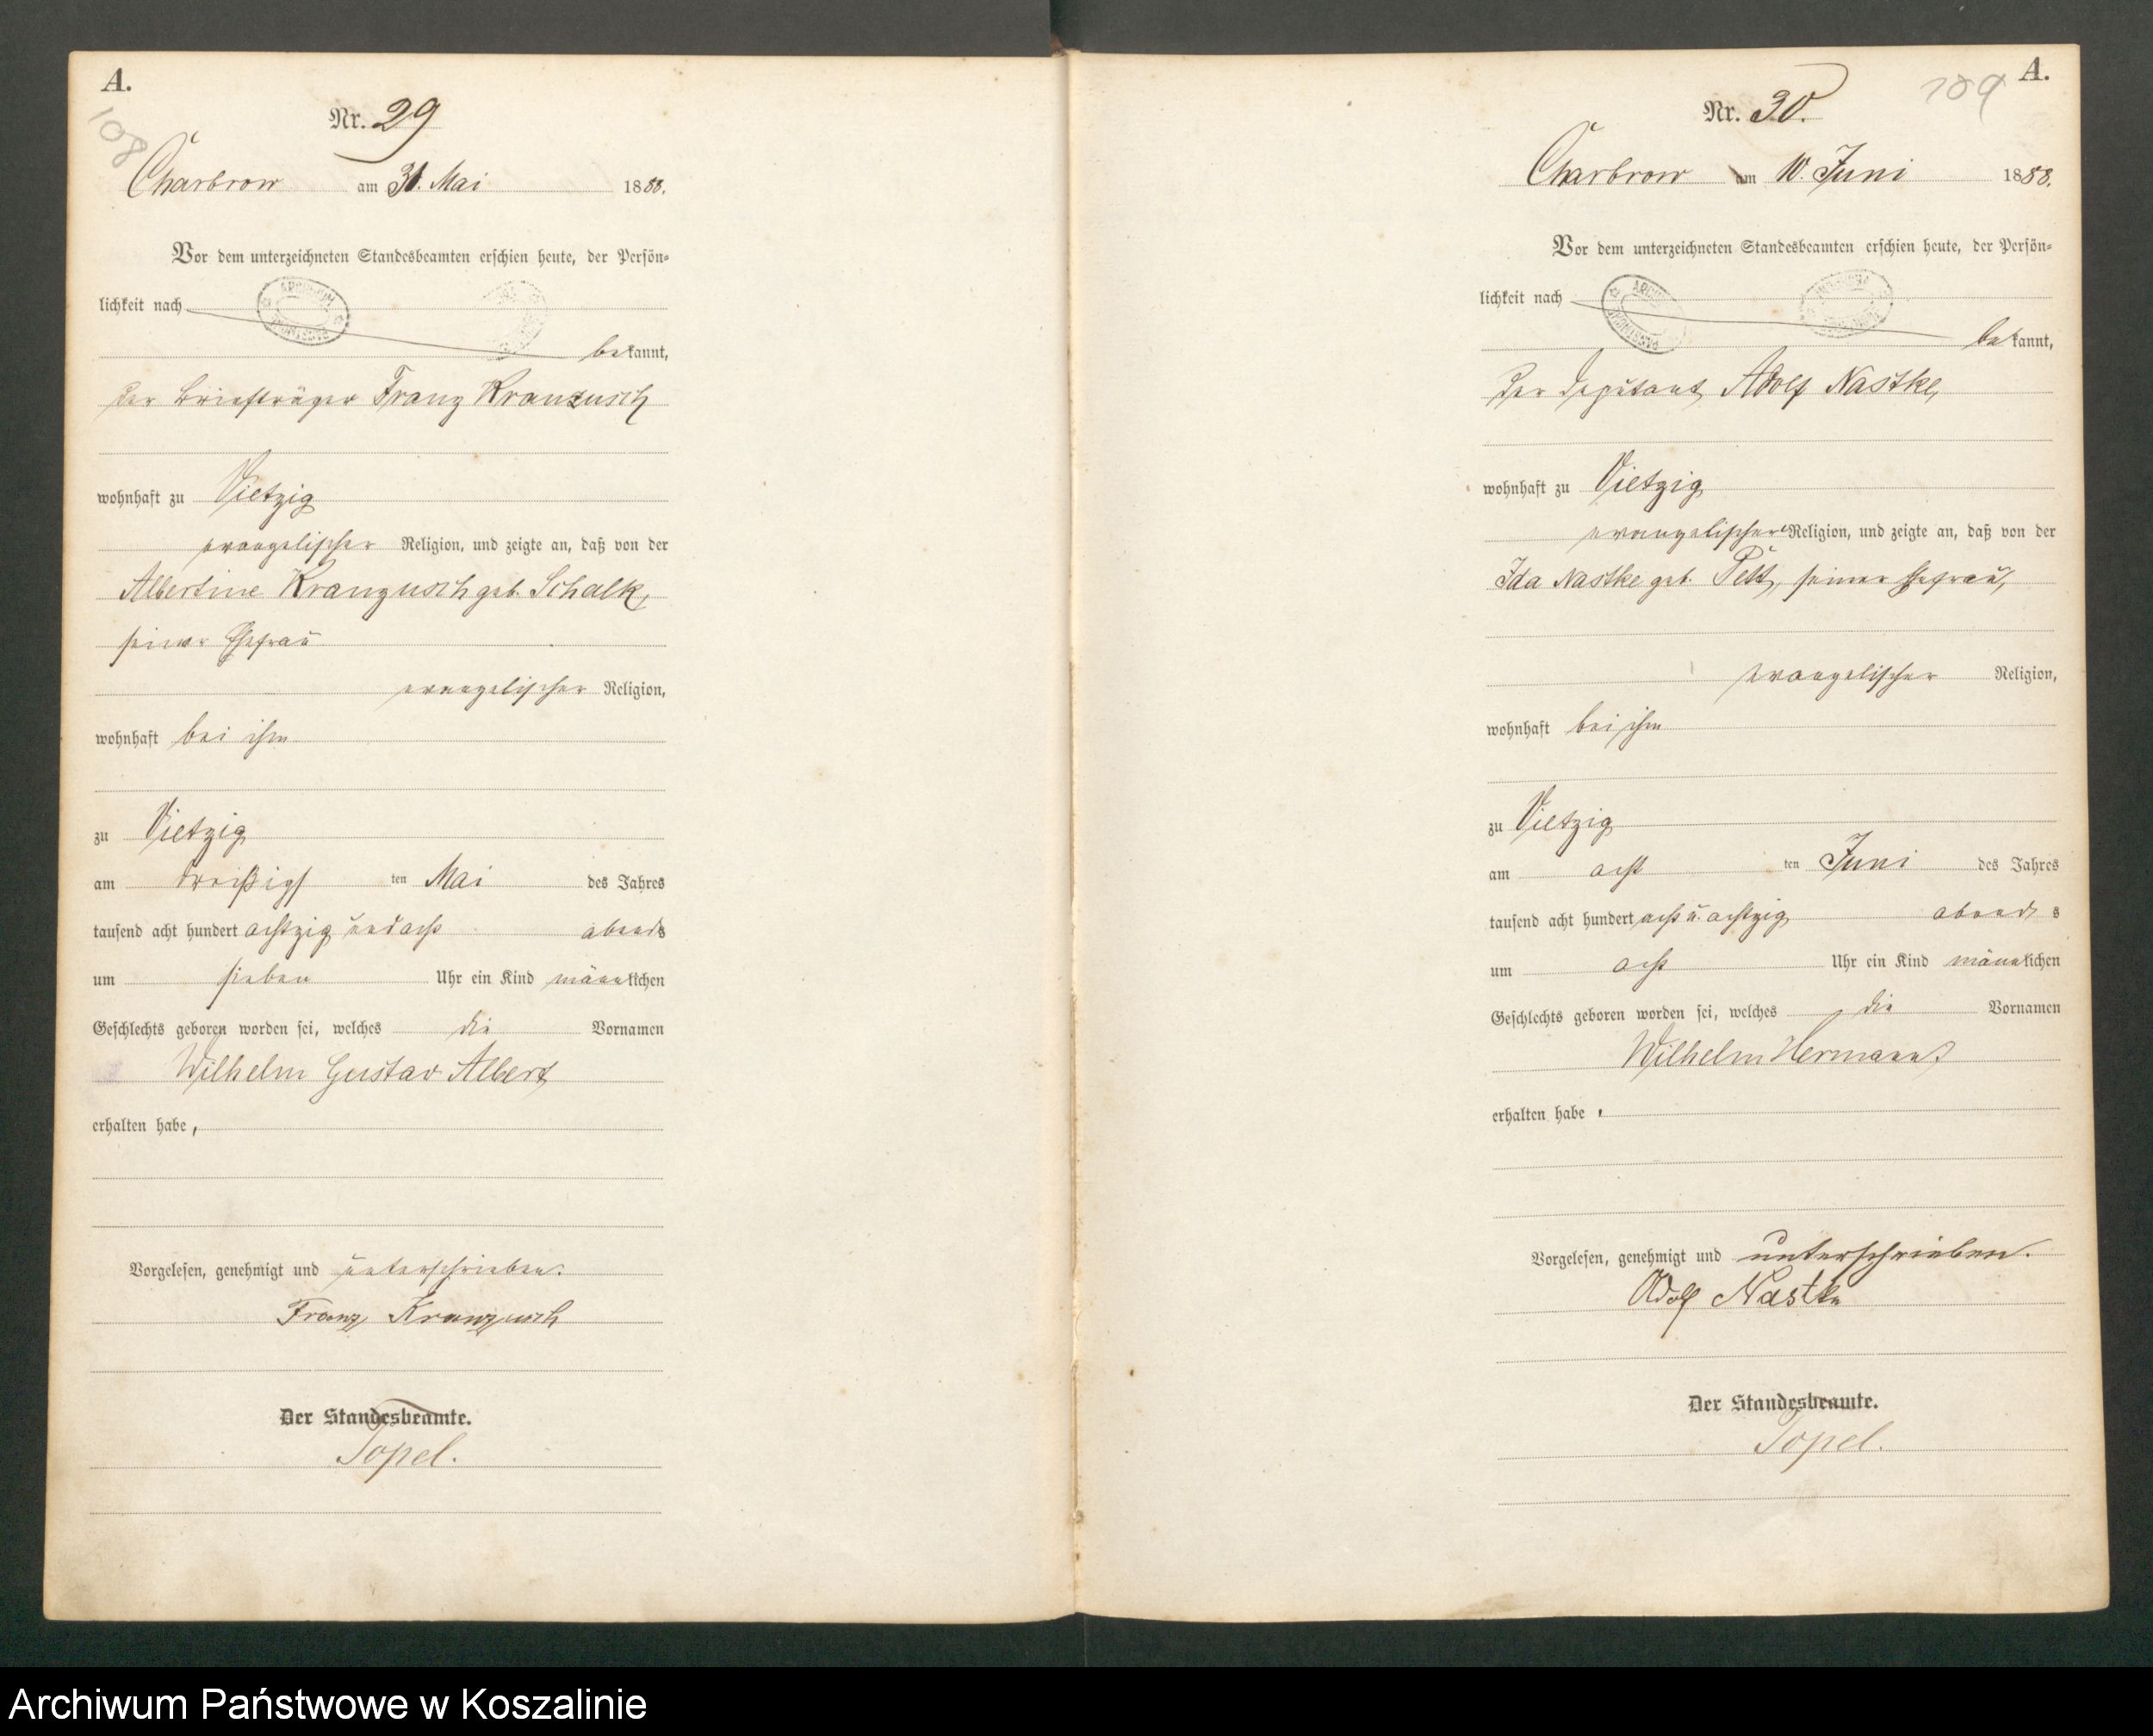 A.
108
Nr. 29
Charbrow am 31. Mai 1888.
Vor dem unterzeichneten Standesbeamten erschien heute, der Persön-
lichkeit nach
bekannt,
der Briefträger Franz Kranzusch
wohnhaft zu Vietzig
evangelischer Religion, und zeigte an, daß von der
Albertine Kranzusch geb. Schalk,
seiner Ehefrau
evangelischer Religion,
wohnhaft bei ihm
zu Vietzig
am dreißigs ten Mai des Jahres
tausend acht hundert achtzig und acht abends
um sieben Uhr ein Kind männlichen
Geschlechts geboren worden sei, welches die Vornamen
Wilhelm Gustav Albert
erhalten habe,
Vorgelesen, genehmigt und unterschrieben.
Franz Kranzusch
Der Standesbeamte.
Topel.
A.
109
Nr. 30.
Charbrow am 10. Juni 1888.
Vor dem unterzeichneten Standesbeamten erschien heute, der Persön-
lichkeit nach
bekannt,
der Deputant Adolf Nastke,
wohnhaft zu Vietzig
evangelischer Religion, und zeigte an, daß von der
Ida Nastke geb. seiner Ehefrau,
evangelischer Religion,
wohnhaft bei ihm
zu Vietzig
am acht ten Juni des Jahres
tausend acht hundert acht u. achtzig abends
um acht Uhr ein Kind männlichen
Geschlechts geboren worden sei, welches die Vornamen
Wilhelm Hermann
erhalten habe,
Vorgelesen, genehmigt und unterschrieben.
Adolf Nastke
Der Standesbeamte.
Topel.
Archiwum Państwowe w Koszalinie